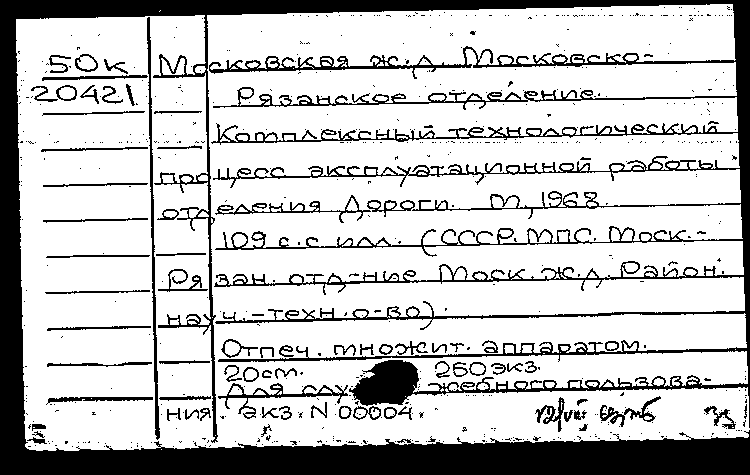 50к Московская ж.д. Московско-
20421 Рязанское отделение.
Комплексный технологический
процесс эксплуатационной работы
отделения дороги. М., 1968.
109 с. с илл. (СССР. МПС. Моск.-
Рязан. отд-ние Моск. ж.д. Район.
науч.-техн. о-во).
Отпеч. множит. аппаратом.
20 ст. 250 экз.
Для служебного пользова-
ния. экз. N 00004.